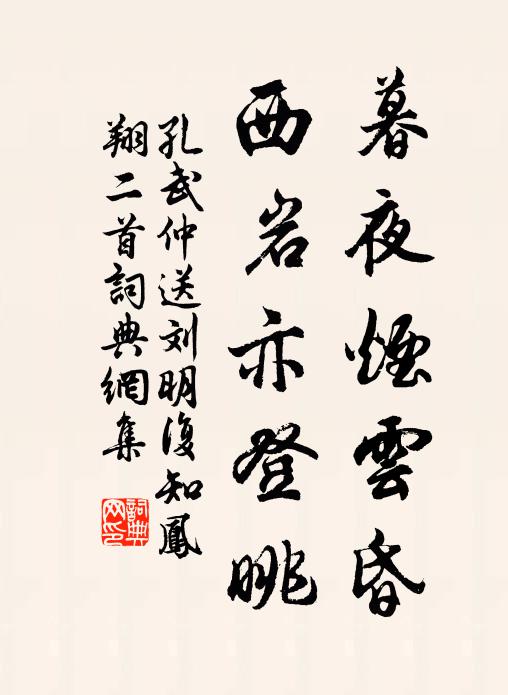 暮夜煙雲昏
西岩亦登眺
孔武仲送刘明復知鳳
翔二首詞典網集
詞典网印